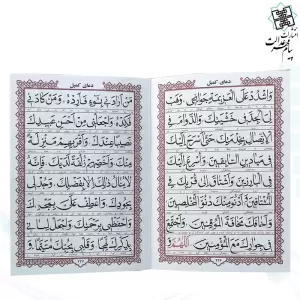 دعای کمیل
وَاشْدُدْ عَلَى الْعَزِيمَةِ جَوانِحى، وَهَبْ
لِىَ الْجِدَّ فى خَشْيَتِكَ، وَالدَّوامَ فِى
الْاِتِّصالِ بِخِدْمَتِكَ، حَتّى اَسْرَحَ اِلَيْكَ
فى مَيادينِ السّابِقينَ، وَاُسْرِعَ اِلَيْكَ
فِى الْبارِزينَ، وَاَشْتاقَ اِلى قُرْبِكَ فِى
الْمُشْتاقينَ، وَاَدْنُوَ مِنْكَ دُنُوَّ الْمُخْلِصينَ
وَاَخافَكَ مَخافَةَ الْمُوقِنينَ، وَاَجْتَمِعَ
فى جِوارِكَ مَعَ الْمُؤْمِنينَ، اَللّهُمَّ وَ
دعای کمیل
مَنْ اَرادَنى بِسُوءٍ فَاَرِدْهُ، وَمَنْ كادَنى
فَكِدْهُ، وَاجْعَلْنى مِنْ اَحْسَنِ عَبيدِكَ
نَصيباً عِنْدَكَ، وَاَقْرَبِهِمْ مَنْزِلَةً
مِنْكَ، وَاَخَصِّهِمْ زُلْفَةً لَدَيْكَ، فَاِنَّهُ
لا يُنالُ ذلِكَ اِلّا بِفَضْلِكَ، وَجُدْ لى
بِجُودِكَ، وَاعْطِفْ عَلَىَّ بِمَجْدِكَ
وَاحْفَظْنى بِرَحْمَتِكَ، وَاجْعَلْ لِسانى
بِذِكْرِكَ لَهِجاً، وَقَلْبى بِحُبِّكَ مُتَيَّماً، وَ